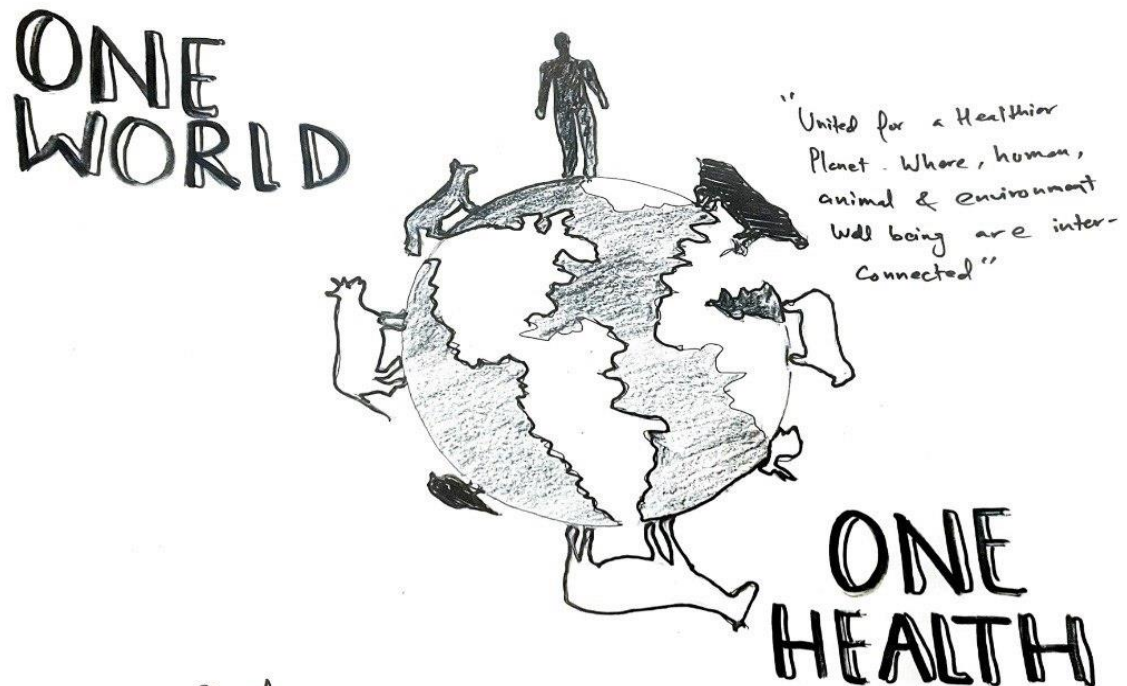 ONE
WORLD
"United for a Healthier
Planet. Where, human,
animal & environment
well being are inter-
connected"
ONE
HEALTH